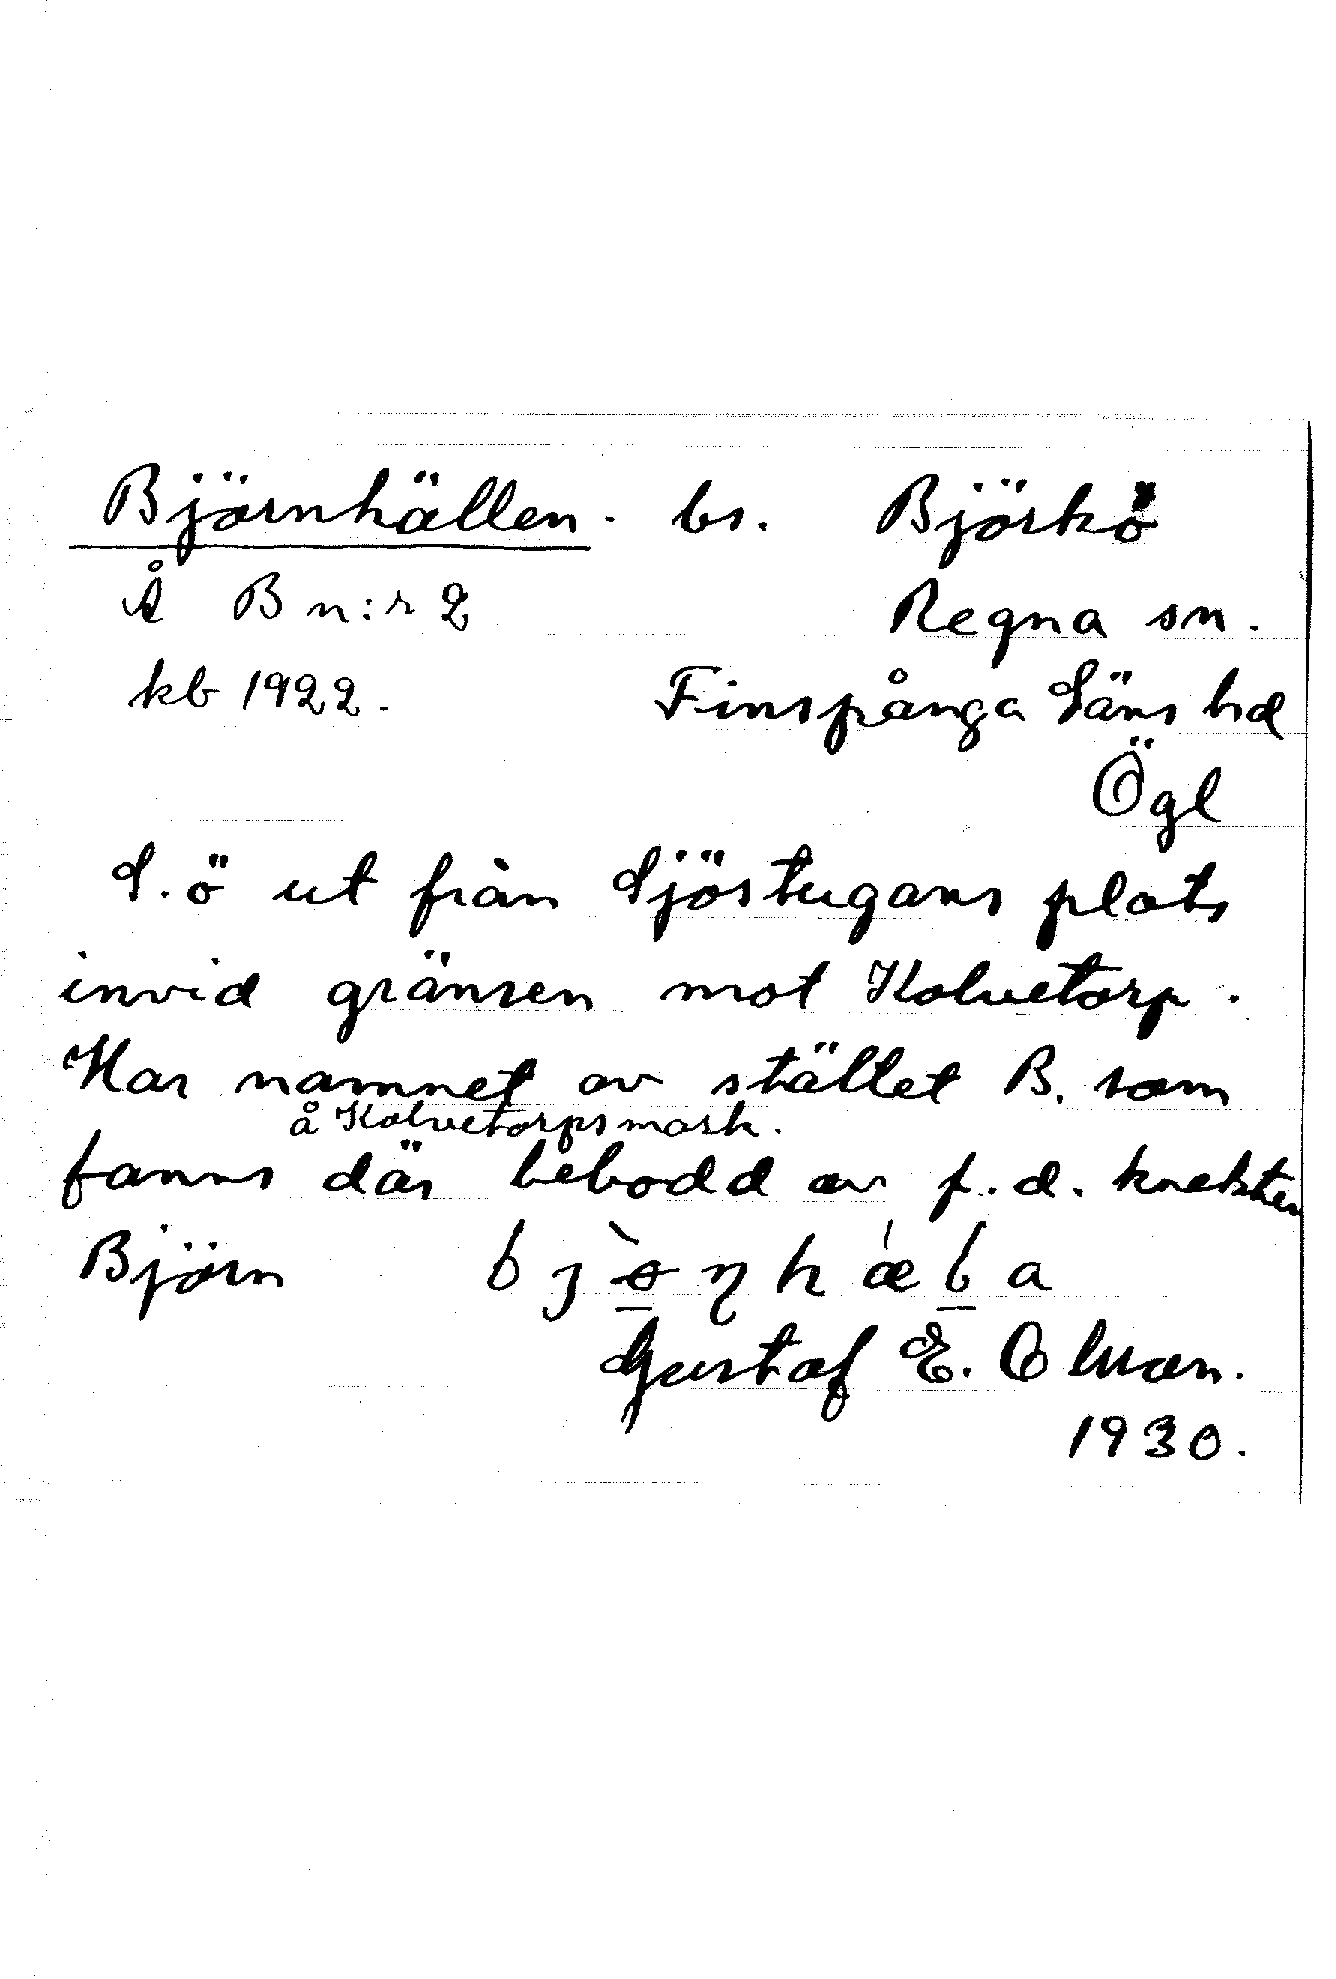 Björnhällen. bs. Björkö
Å B n:r 2 Regna sn.
kb 1922. Finspånga Läns hd
Ögl
S.ö ut från Sjöstugans plats
invid gränsen mot Kolvetorp.
Har namnet av stället B. som
å Kolvetorps mark.
fanns där bebodd av f.d. knekten
Björn
Gustaf E. Olman.
1930.